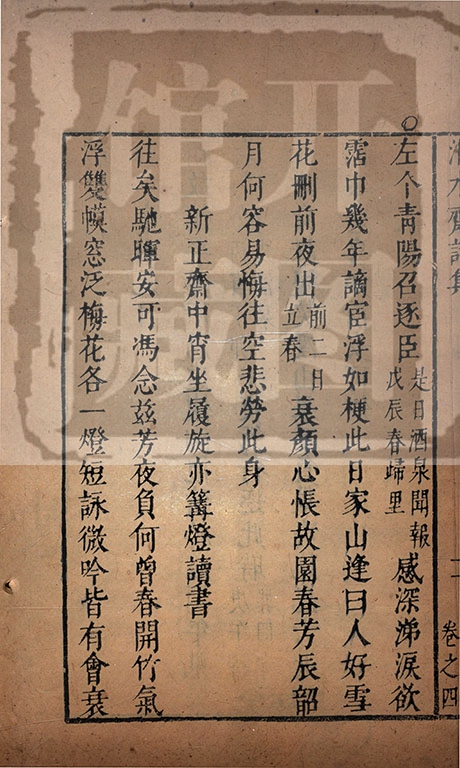 左个青陽召逐臣 是日酒泉聞報 戊辰春歸里 感深涕淚欲
霑巾幾年謫宦浮如梗此日家山逢曰人好雪
花刪前夜出 前二日 立春 衰顏心悵故園春芳辰韶
月何容易悔往空悲勞此身
新正齋中宵坐履旋亦篝燈讀書
往矣馳暉安可馮念茲芳夜負何曾春開竹氣
浮雙幌窓泛梅花各一燈短詠微吟皆有會衰
卷之四